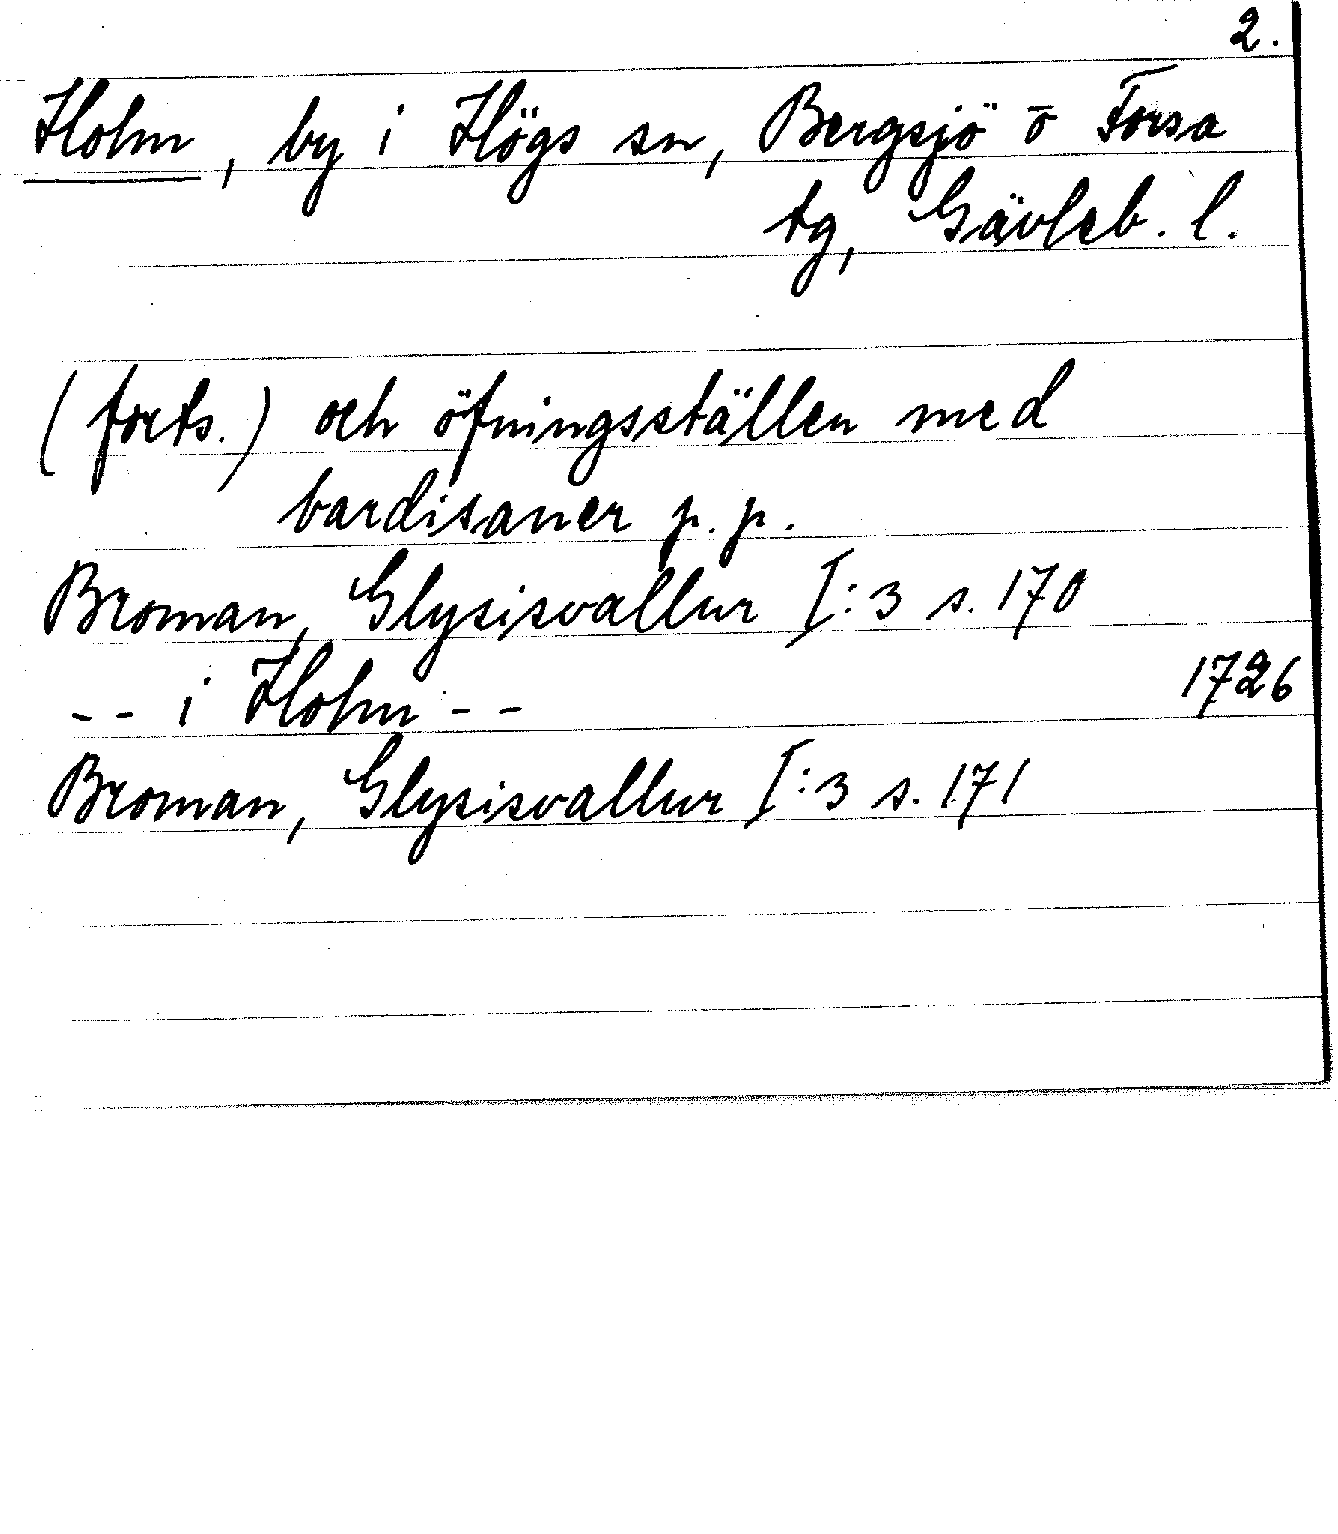 2.
Holm, by i Högs sn, Bergsjö o Forsa
tg, Gävleb. l.
(forts.) och öfningsställen med
bardisaner p. p.
Broman, Glysisvallur I:3 s. 170
-- i Holm -- 1726
Broman, Glysisvallur I:3 s. 171